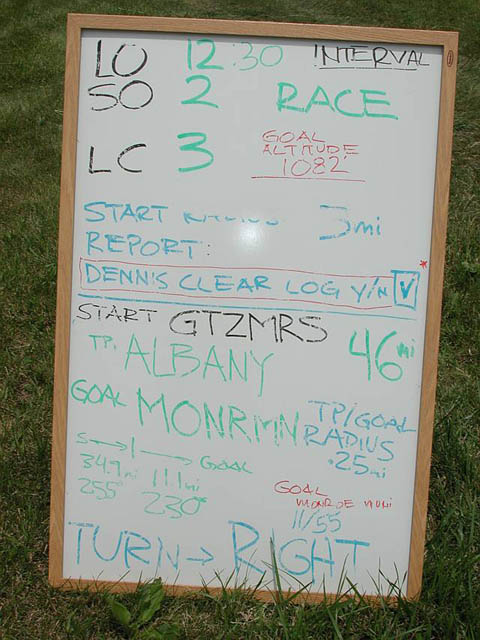 LO 12:30 INTERVAL
SO 2 RACE
LC 3 GOAL
ALTITUDE
1082'
START 3mi
REPORT:
DENNIS CLEAR LOG Y/N Y
*
START GTZMRS
TP1 ALBANY 46 mi
GOAL MONRMN TP/GOAL
RADIUS
.25mi
S → | → GOAL
34.9mi 11.1mi
255° 230°
GOAL
MONROE MUNI
11/55
TURN → RIGHT